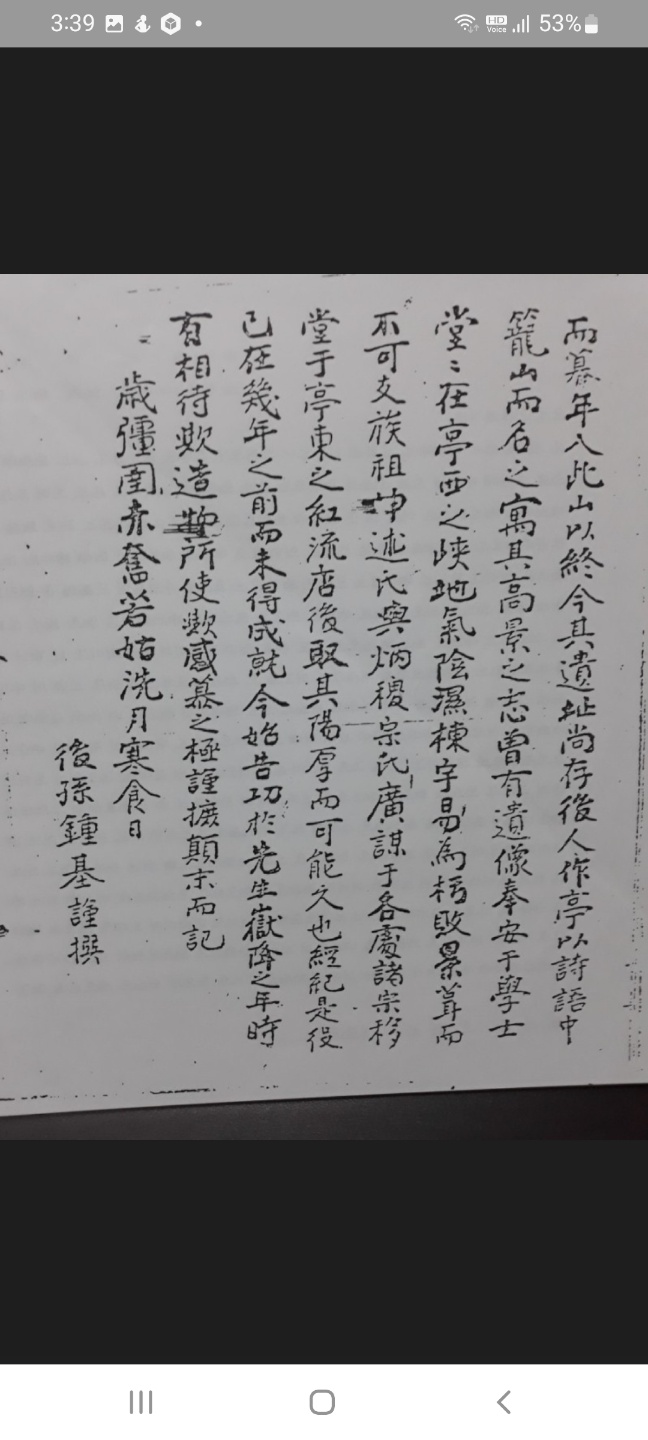 3:39
HD Voice
53%
而暮年入此山以終今其遺址尚存後人作亭以詩語中
籠山而名之寓其高景之志曾有遺像奉安于學士
堂〻在亭西之峽地氣陰濕棟宇易爲朽敗累葺而
不可支族祖 述氏與炳稷宗氏廣謀于各處諸宗移
堂于亭東之紅流店後取其陽厚而可能久也經紀是役
已在幾年之前而未得成就今始告功於先生嶽降之年時
有相待歟造物所使歟感慕之極謹摭顛末而記
歲彊圉赤奮若姑洗月寒食日
後孫鍾基謹撰